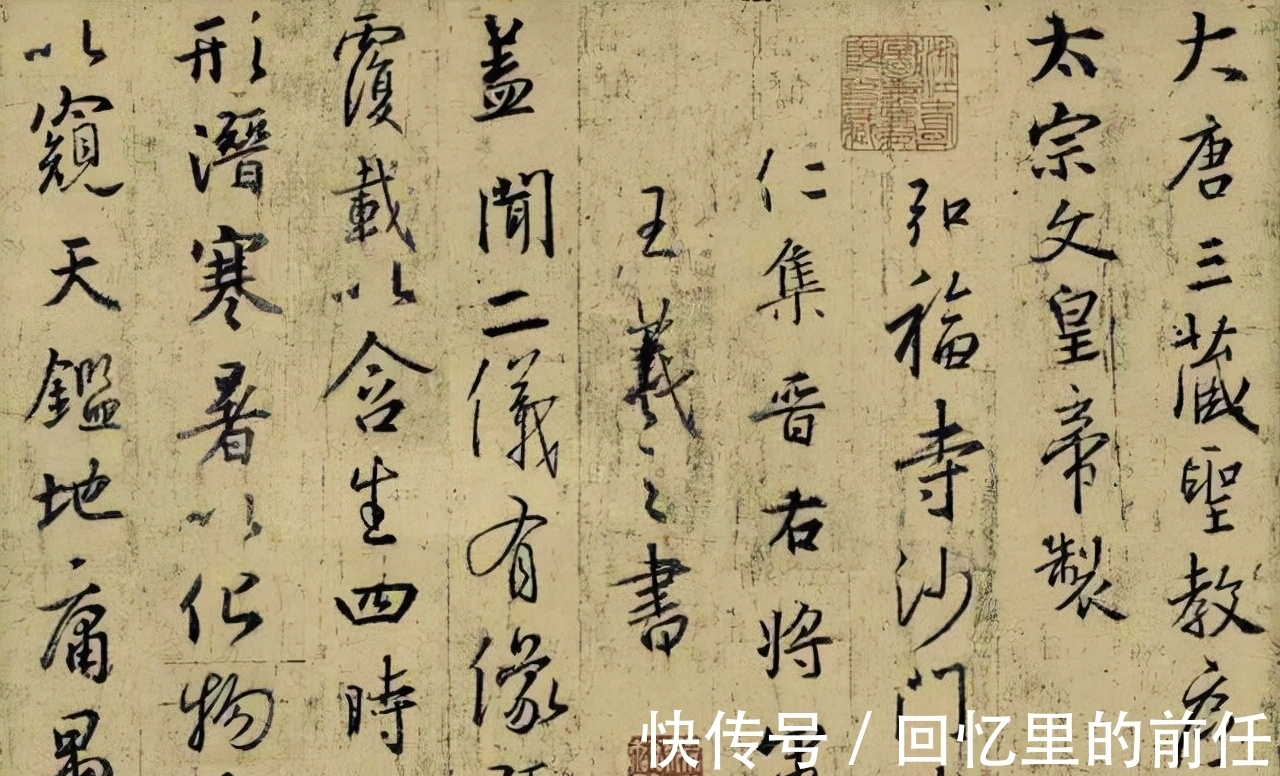 大唐三藏聖教序
太宗文皇帝製
弘福寺沙門
仁集晉右將軍
王羲之書
蓋聞二儀有像
覆載以含生四時
形潛寒暑以化物
以窺天鑑地庸愚
快传号 / 回忆里的前任